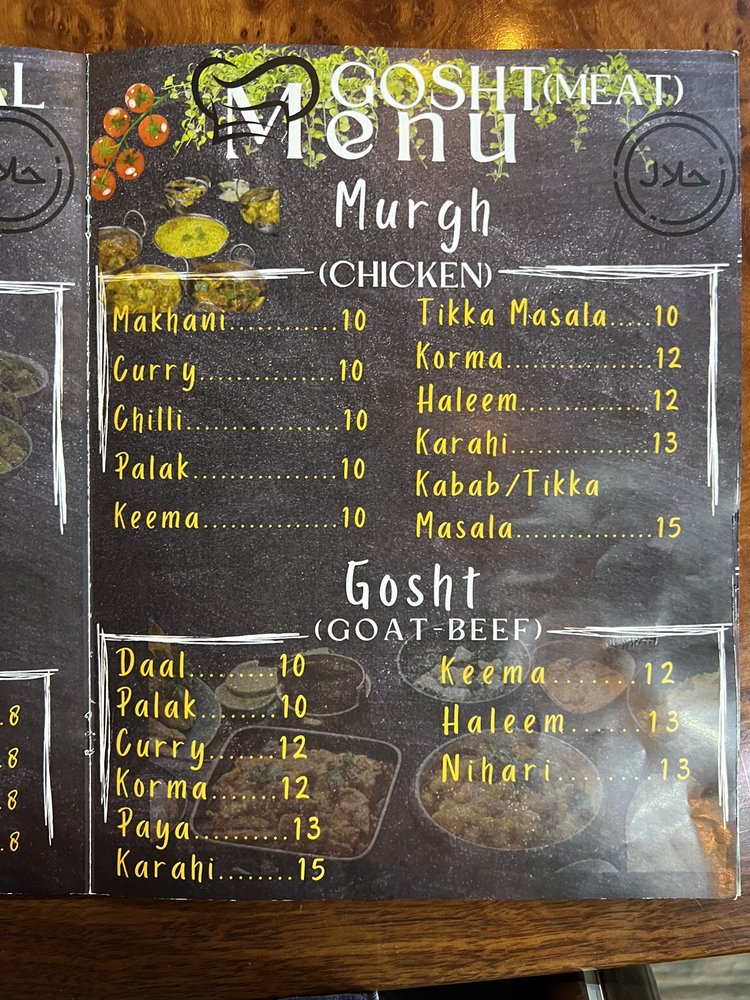 AL
حلال
GOSHT(MEAT)
Menu
حلال
Murgh
(CHICKEN)
Makhani............10
Curry...............10
Chilli.................10
Palak................10
Keema...............10
Tikka Masala.....10
Korma................12
Haleem...............12
Karahi................13
Kabab/Tikka
Masala................15
Gosht
(GOAT-BEEF)
Daal.........10
Palak........10
Curry........12
Korma.......12
Paya..........13
Karahi........15
Keema.......12
Haleem......13
Nihari........13
.8
.8
.8
.8